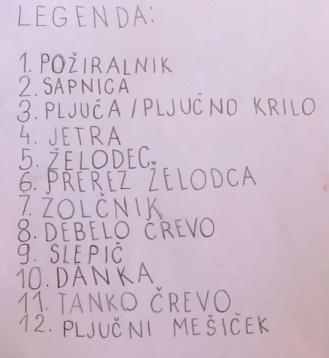 LEGENDA:
1. POŽIRALNIK
2. SAPNICA
3. PLJUČA / PLJUČNO KRILO
4. JETRA
5. ŽELODEC
6. PREREZ ŽELODCA
7. ŽOLČNIK
8. DEBELO ČREVO
9. SLEPIČ
10. DANKA
11. TANKO ČREVO
12. PLJUČNI MEŠIČEK